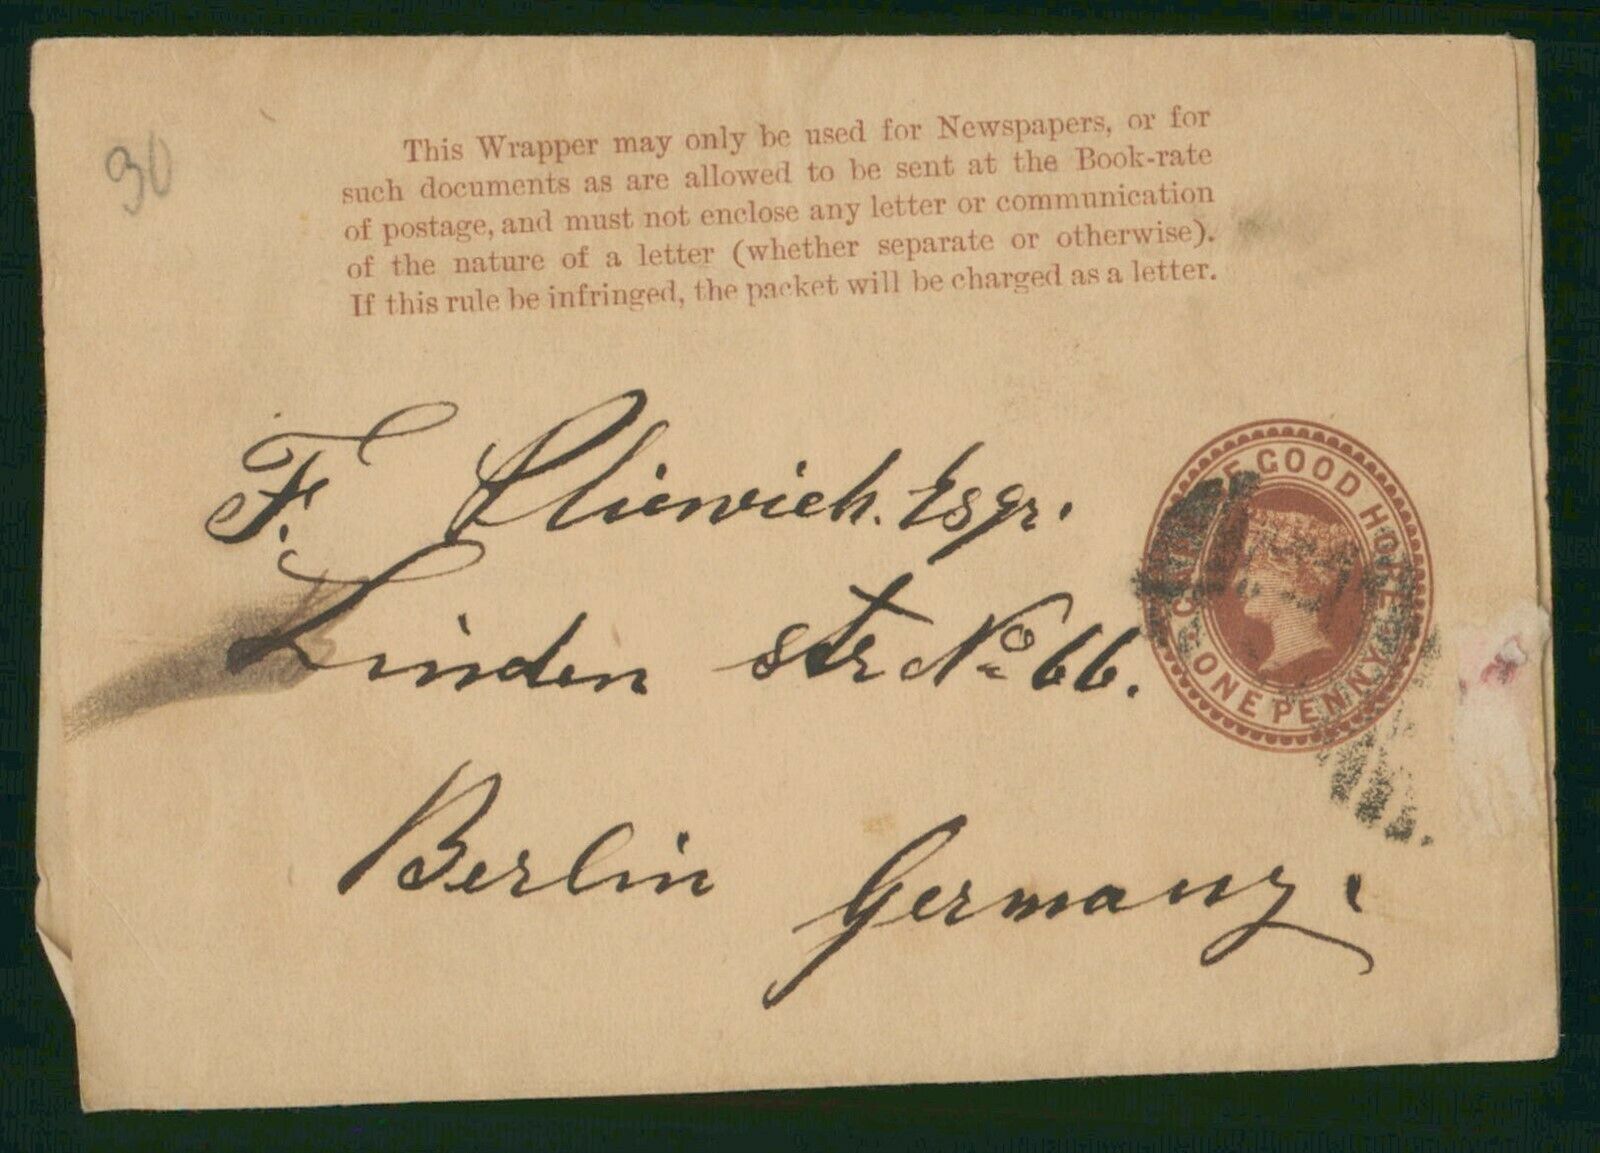 30
This Wrapper may only be used for Newspapers, or for
such documents as are allowed to be sent at the Book-rate
of postage, and must not enclose any letter or communication
of the nature of a letter (whether separate or otherwise).
If this rule be infringed, the packet will be charged as a letter.
F. Esqr.
Linden str No 66.
Berlin Germany.
CAPE OF GOOD HOPE
ONE PENNY